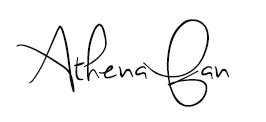 Athena Fan